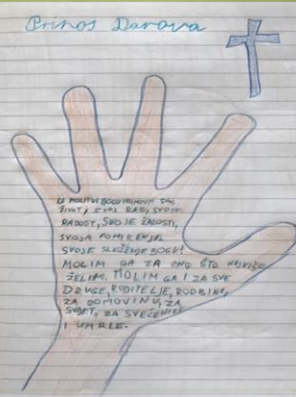 Prinos Darova
U MOLITVI BOGU PRINOSIM SVOJ
ŽIVOT, SVOJ RAD, SVOJU
RADOST, SVOJE ŽALOSTI,
SVOJA POMIRENJA,
SVOJE SLUŽENJE BOGU.
MOLIM GA ZA ONO ŠTO NAJVIŠE
ŽELIM. MOLIM GA I ZA SVE
DRUGE, RODITELJE, RODBINU,
ZA DOMOVINU, ZA
SVIJET, ZA SVEĆENIKE
I UMRLE.